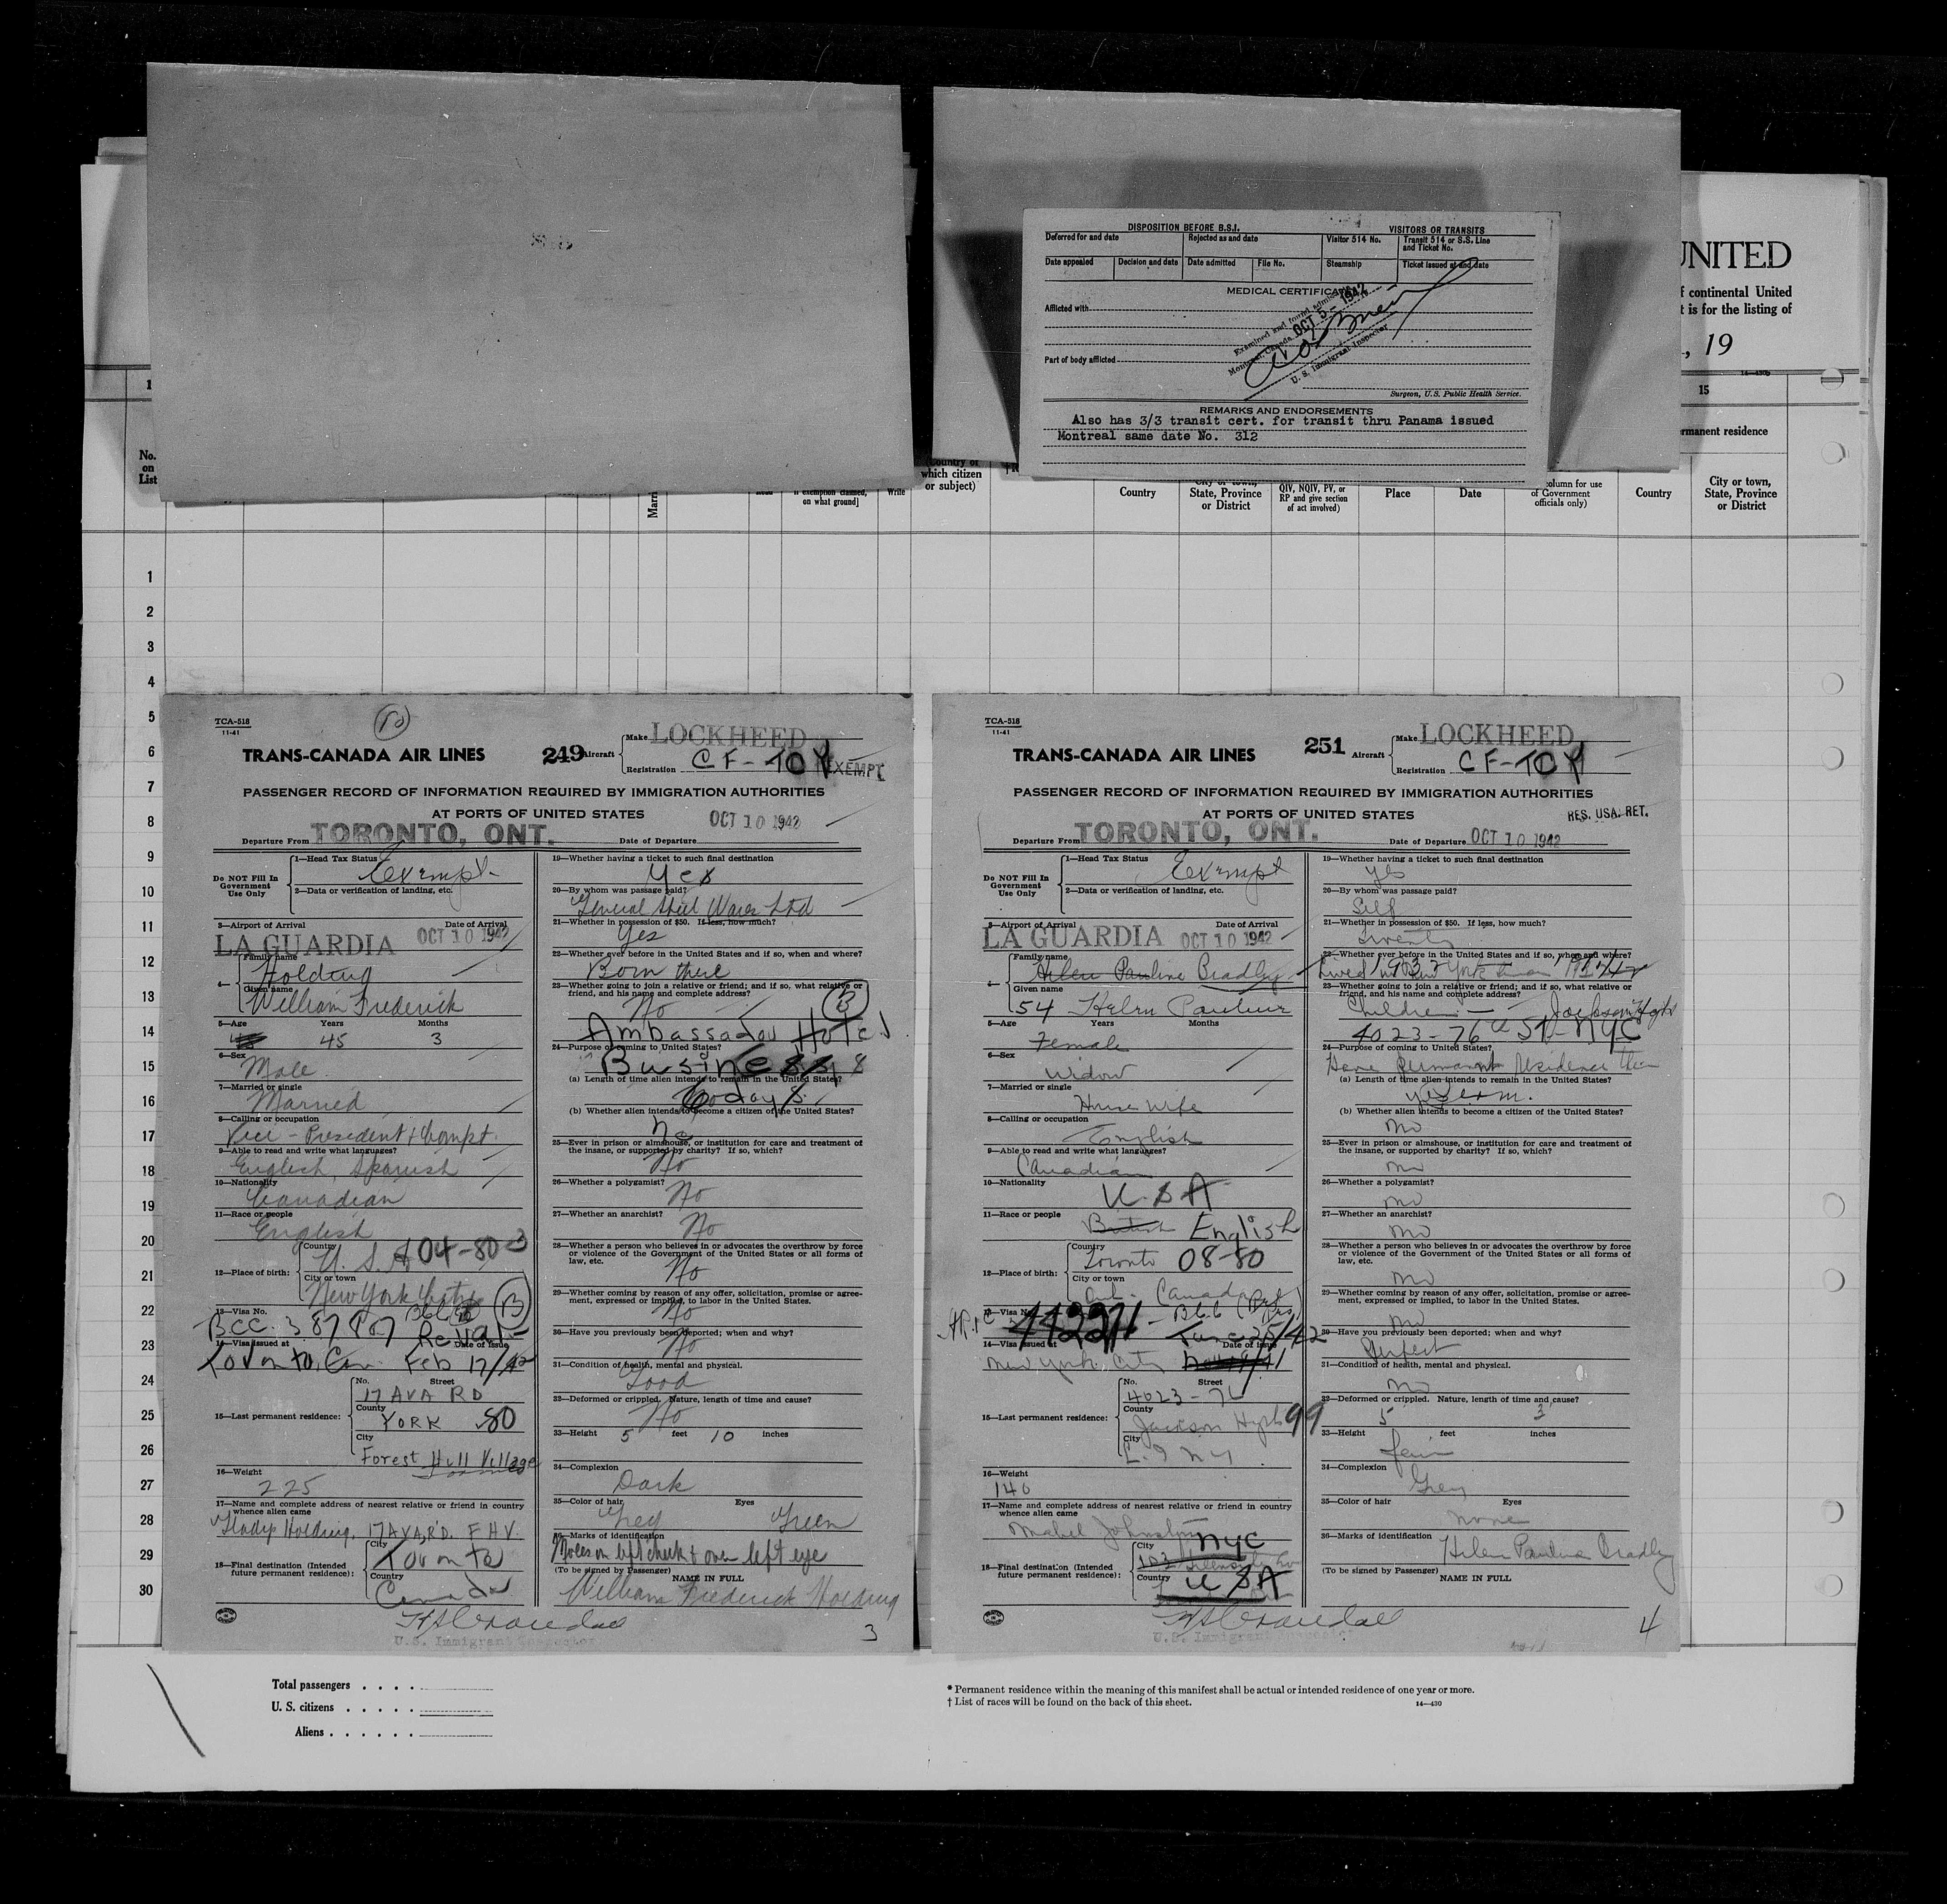 DISPOSITION BEFORE B.S.I.
VISITORS OR TRANSITS
Deferred for and date
Rejected as and date
Visitor 514 No.
Transit 514 or S.S. Line and Ticket No.
Date appealed
Decision and date
Date admitted
File No.
Steamship
Ticket issued at and date
MEDICAL CERTIFICATE
Afflicted with
Examined and found admissible
Montreal, Canada OCT 5 - 1942
U. S. Immigrant Inspector
Part of body afflicted
Surgeon, U.S. Public Health Service.
REMARKS AND ENDORSEMENTS
Also has 3/3 transit cert. for transit thru Panama issued
Montreal same date No. 312
UNITED
f continental United
t is for the listing of
, 19
15
rmanent residence
No. on List
which citizen or subject)
Country
City or town, State, Province or District
QIV, NQIV, PV, or RP and give section of act involved)
Place
Date
column for use of Government officials only)
Country
City or town, State, Province or District
1
2
3
4
5
6
7
8
9
10
11
12
13
14
15
16
17
18
19
20
21
22
23
24
25
26
27
28
29
30
TCA-518
11-41
10
TRANS-CANADA AIR LINES
249
Aircraft
Make LOCKHEED
Registration CF-TCY
EXEMPT
PASSENGER RECORD OF INFORMATION REQUIRED BY IMMIGRATION AUTHORITIES
AT PORTS OF UNITED STATES
OCT 10 1942
Departure From TORONTO, ONT.
Date of Departure
Do NOT Fill In Government Use Only
1—Head Tax Status Exempt
2—Data or verification of landing, etc.
3—Airport of Arrival LA GUARDIA
Date of Arrival OCT 10 1942
4— Family name Holding
Given name William Frederick
5—Age Years 45 Months 3
6—Sex Male
7—Married or single Married
8—Calling or occupation Vice-President & Compt.
9—Able to read and write what languages? English, Spanish
10—Nationality Canadian
11—Race or people English
12—Place of birth: Country U.S.A. 04-80
City or town New York
13—Visa No. BCC. 387807 Reval-
14—Visa issued at Toronto, Can. Date of Issue Feb 17/42
15—Last permanent residence: No. Street 17 AVA RD
County YORK 80
City Forest Hill Village
16—Weight 225
17—Name and complete address of nearest relative or friend in country whence alien came
Gladys Holding, 17 AVA, RD. F.H.V.
18—Final destination (Intended future permanent residence): City Toronto
Country Canada
U.S. Immigrant Inspector
19—Whether having a ticket to such final destination
Yes
20—By whom was passage paid?
General Steel Wares Ltd
21—Whether in possession of $50. If less, how much?
Yes
22—Whether ever before in the United States and if so, when and where?
Born there
23—Whether going to join a relative or friend; and if so, what relative or friend, and his name and complete address?
No
B
Ambassador Hotel
24—Purpose of coming to United States?
Business
(a) Length of time alien intends to remain in the United States?
6 days
(b) Whether alien intends to become a citizen of the United States?
No
25—Ever in prison or almshouse, or institution for care and treatment of the insane, or supported by charity? If so, which?
No
26—Whether a polygamist? No
27—Whether an anarchist? No
28—Whether a person who believes in or advocates the overthrow by force or violence of the Government of the United States or all forms of law, etc.
No
29—Whether coming by reason of any offer, solicitation, promise or agreement, expressed or implied, to labor in the United States.
No
30—Have you previously been deported; when and why?
No
31—Condition of health, mental and physical.
Good
32—Deformed or crippled. Nature, length of time and cause?
No
33—Height 5 feet 10 inches
34—Complexion Dark
35—Color of hair Grey Eyes Green
36—Marks of identification
Moles on left cheek & over left eye
(To be signed by Passenger)
NAME IN FULL
William Frederick Holding
3
TCA-518
11-41
TRANS-CANADA AIR LINES
251
Aircraft
Make LOCKHEED
Registration CF-TCY
PASSENGER RECORD OF INFORMATION REQUIRED BY IMMIGRATION AUTHORITIES
AT PORTS OF UNITED STATES
RES. USA. RET.
Departure From TORONTO, ONT.
Date of Departure OCT 10 1942
Do NOT Fill In Government Use Only
1—Head Tax Status Exempt
2—Data or verification of landing, etc.
3—Airport of Arrival LA GUARDIA
Date of Arrival OCT 10 1942
4— Family name Helen Pauline Bradley
Given name 54 Helen Pauline
5—Age Years Months
Female
6—Sex
Widow
7—Married or single
House wife
8—Calling or occupation
English
9—Able to read and write what languages?
Canadian
10—Nationality
U.S.A
11—Race or people
British English
12—Place of birth: Country Toronto 08-80
City or town Ont. Canada
13—Visa No. June 25/42
14—Visa issued at New York City Date of Issue
15—Last permanent residence: No. Street 4023-76
County Jackson Hgts 99
City L.I. N.Y.
16—Weight 140
17—Name and complete address of nearest relative or friend in country whence alien came
Mabel Johnston
18—Final destination (Intended future permanent residence): City NYC
Country USA
U.S. Immigrant Inspector
19—Whether having a ticket to such final destination
Yes
20—By whom was passage paid?
Self
21—Whether in possession of $50. If less, how much?
Twenty
22—Whether ever before in the United States and if so, when and where?
23—Whether going to join a relative or friend; and if so, what relative or friend, and his name and complete address?
Children — Jackson Hgts
4023-76 St. NYC
24—Purpose of coming to United States?
Have permanent residence there
(a) Length of time alien intends to remain in the United States?
(b) Whether alien intends to become a citizen of the United States?
No
25—Ever in prison or almshouse, or institution for care and treatment of the insane, or supported by charity? If so, which?
No
26—Whether a polygamist?
No
27—Whether an anarchist?
No
28—Whether a person who believes in or advocates the overthrow by force or violence of the Government of the United States or all forms of law, etc.
No
29—Whether coming by reason of any offer, solicitation, promise or agreement, expressed or implied, to labor in the United States.
No
30—Have you previously been deported; when and why?
Perfect
31—Condition of health, mental and physical.
No
32—Deformed or crippled. Nature, length of time and cause?
5 3
33—Height feet inches
Fair
34—Complexion
Grey
35—Color of hair Eyes
none
36—Marks of identification
Helen Pauline Bradley
(To be signed by Passenger)
NAME IN FULL
4
Total passengers
U.S. citizens
Aliens
* Permanent residence within the meaning of this manifest shall be actual or intended residence of one year or more.
† List of races will be found on the back of this sheet.
14—430